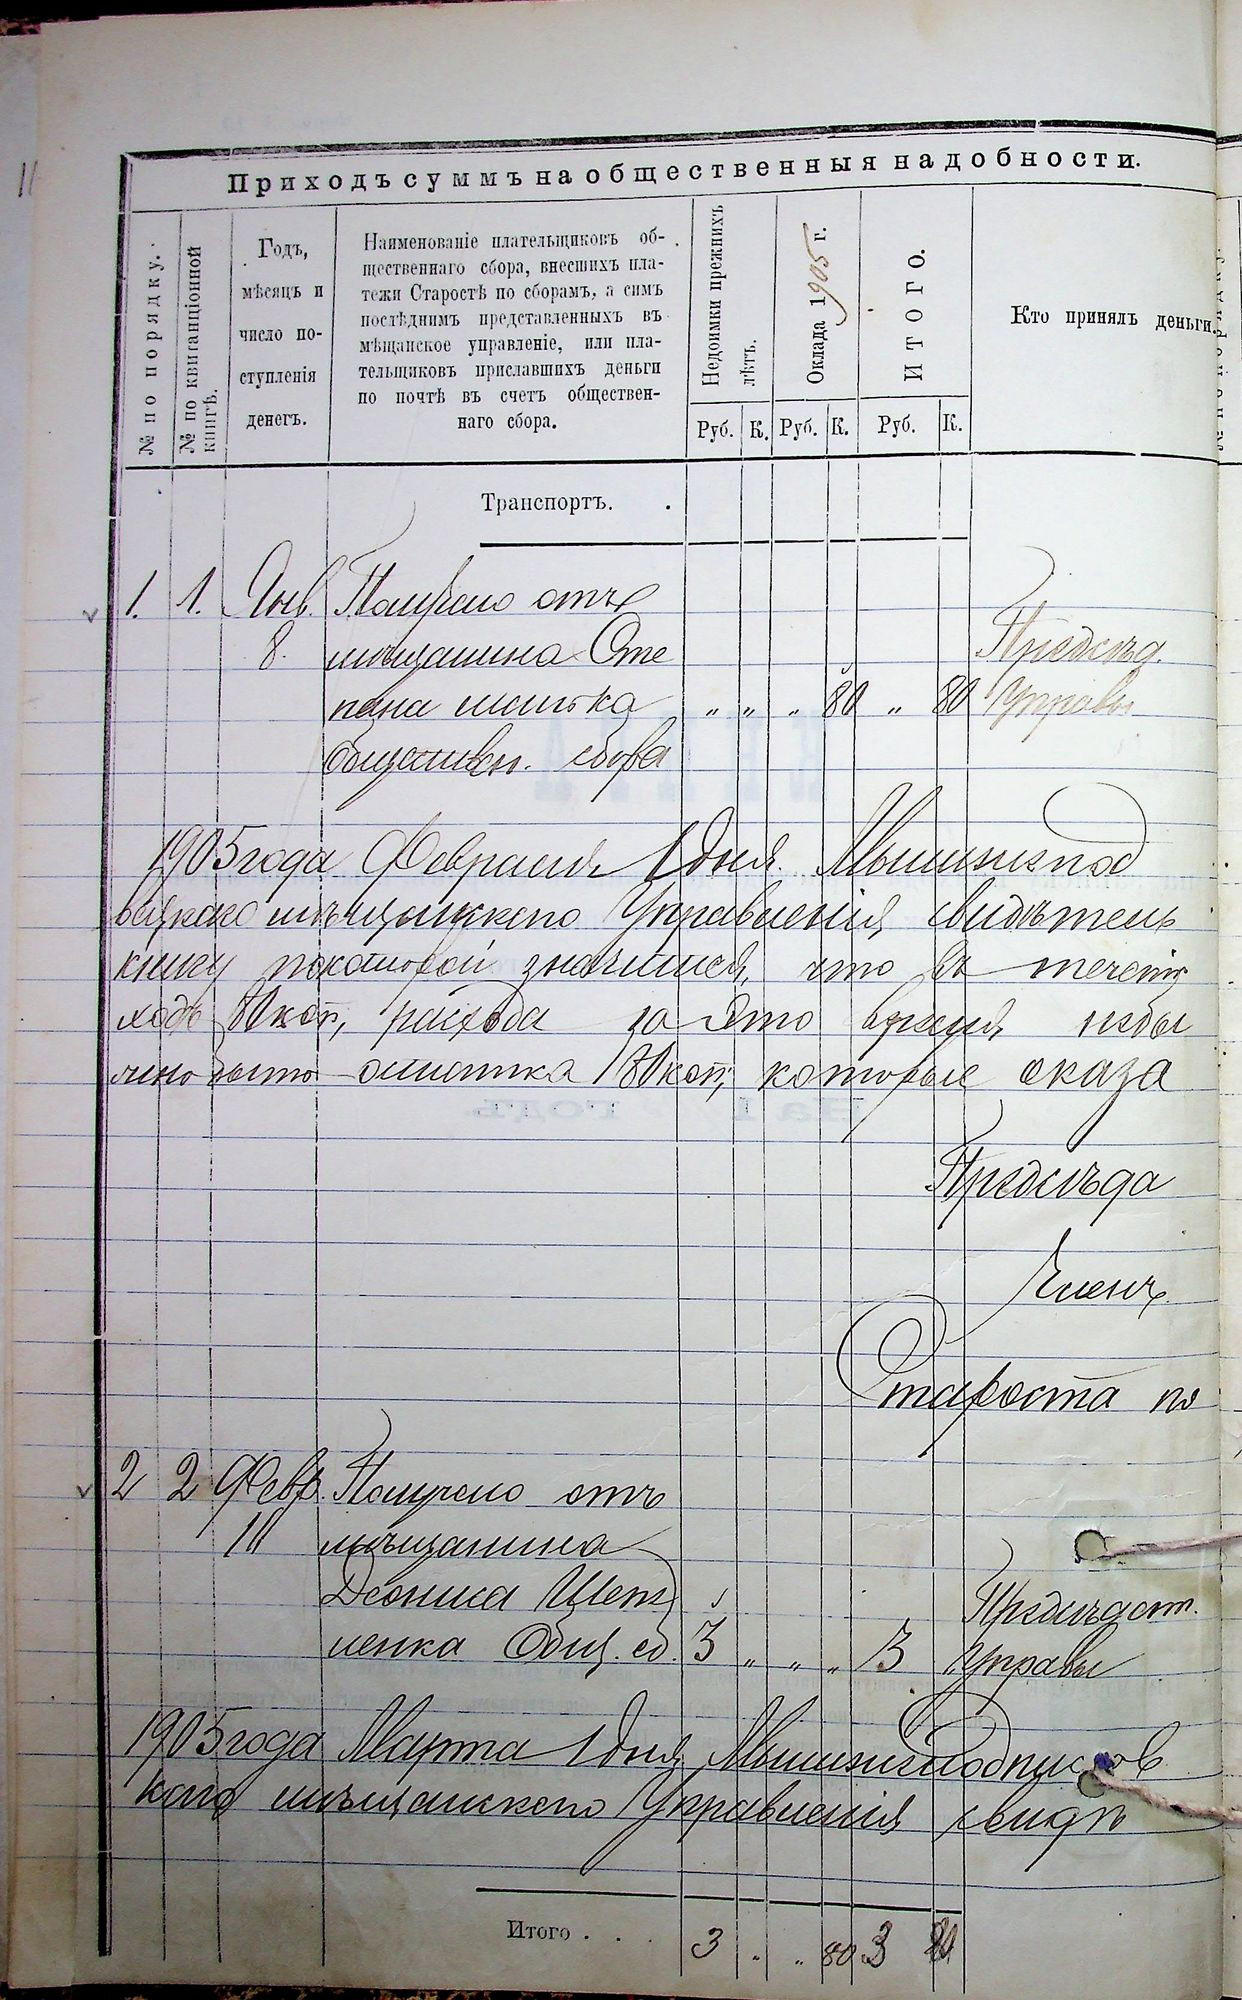 11
Приходъ суммъ на общественныя надобности.
№ по порядку.
№ по квитанціонной книгѣ.
Годъ,
мѣсяцъ и
число по-
ступленія
денегъ.
Наименованіе плательщиковъ об-
щественнаго сбора, внесшихъ пла-
тежи Старостѣ по сборамъ, а симъ
послѣднимъ представленныхъ въ
мѣщанское управленіе, или пла-
тельщиковъ приславшихъ деньги
по почтѣ въ счетъ обществен-
наго сбора.
Недоимки прежнихъ лѣтъ.
Оклада 1905 г.
ИТОГО.
Кто принялъ деньги.
Руб. К. Руб. К. Руб. К.
Транспортъ. .
1. 1. Янв. Получено отъ
8. мѣщанина Сте Предсѣд.
пана „ „ „ 80 „ 80 Управы
обществен. сбора
1905 года Февраля 1 дня. Мы нижепод
мѣщанскаго Управленія свидѣтель
книгу по которой значится, что въ теченіи
ходъ 80 коп, расхода за это время небы
остатка 80 коп, которые оказа
Предсѣда
Членъ
Староста по
2 2 Февр. Получено отъ
10 мѣщанина
Деониса Щеп Предсѣдат.
ненка Общ. сб. 3 „ „ „ 3 Управы
1905 года Марта 1 дня, Мы нижеподписав
мѣщанскаго Управленія свидѣ
Итого . . . 3 „ „ 80 3 80